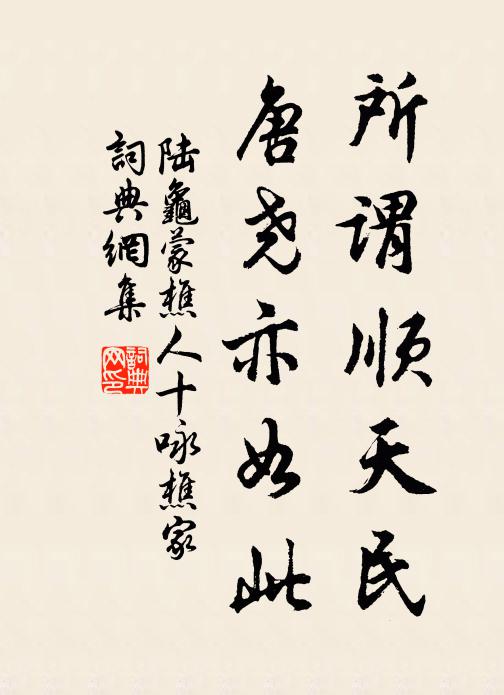 所謂順天民
唐尧亦如此
陆龜蒙樵人十咏樵家
詞典網集
詞典网印